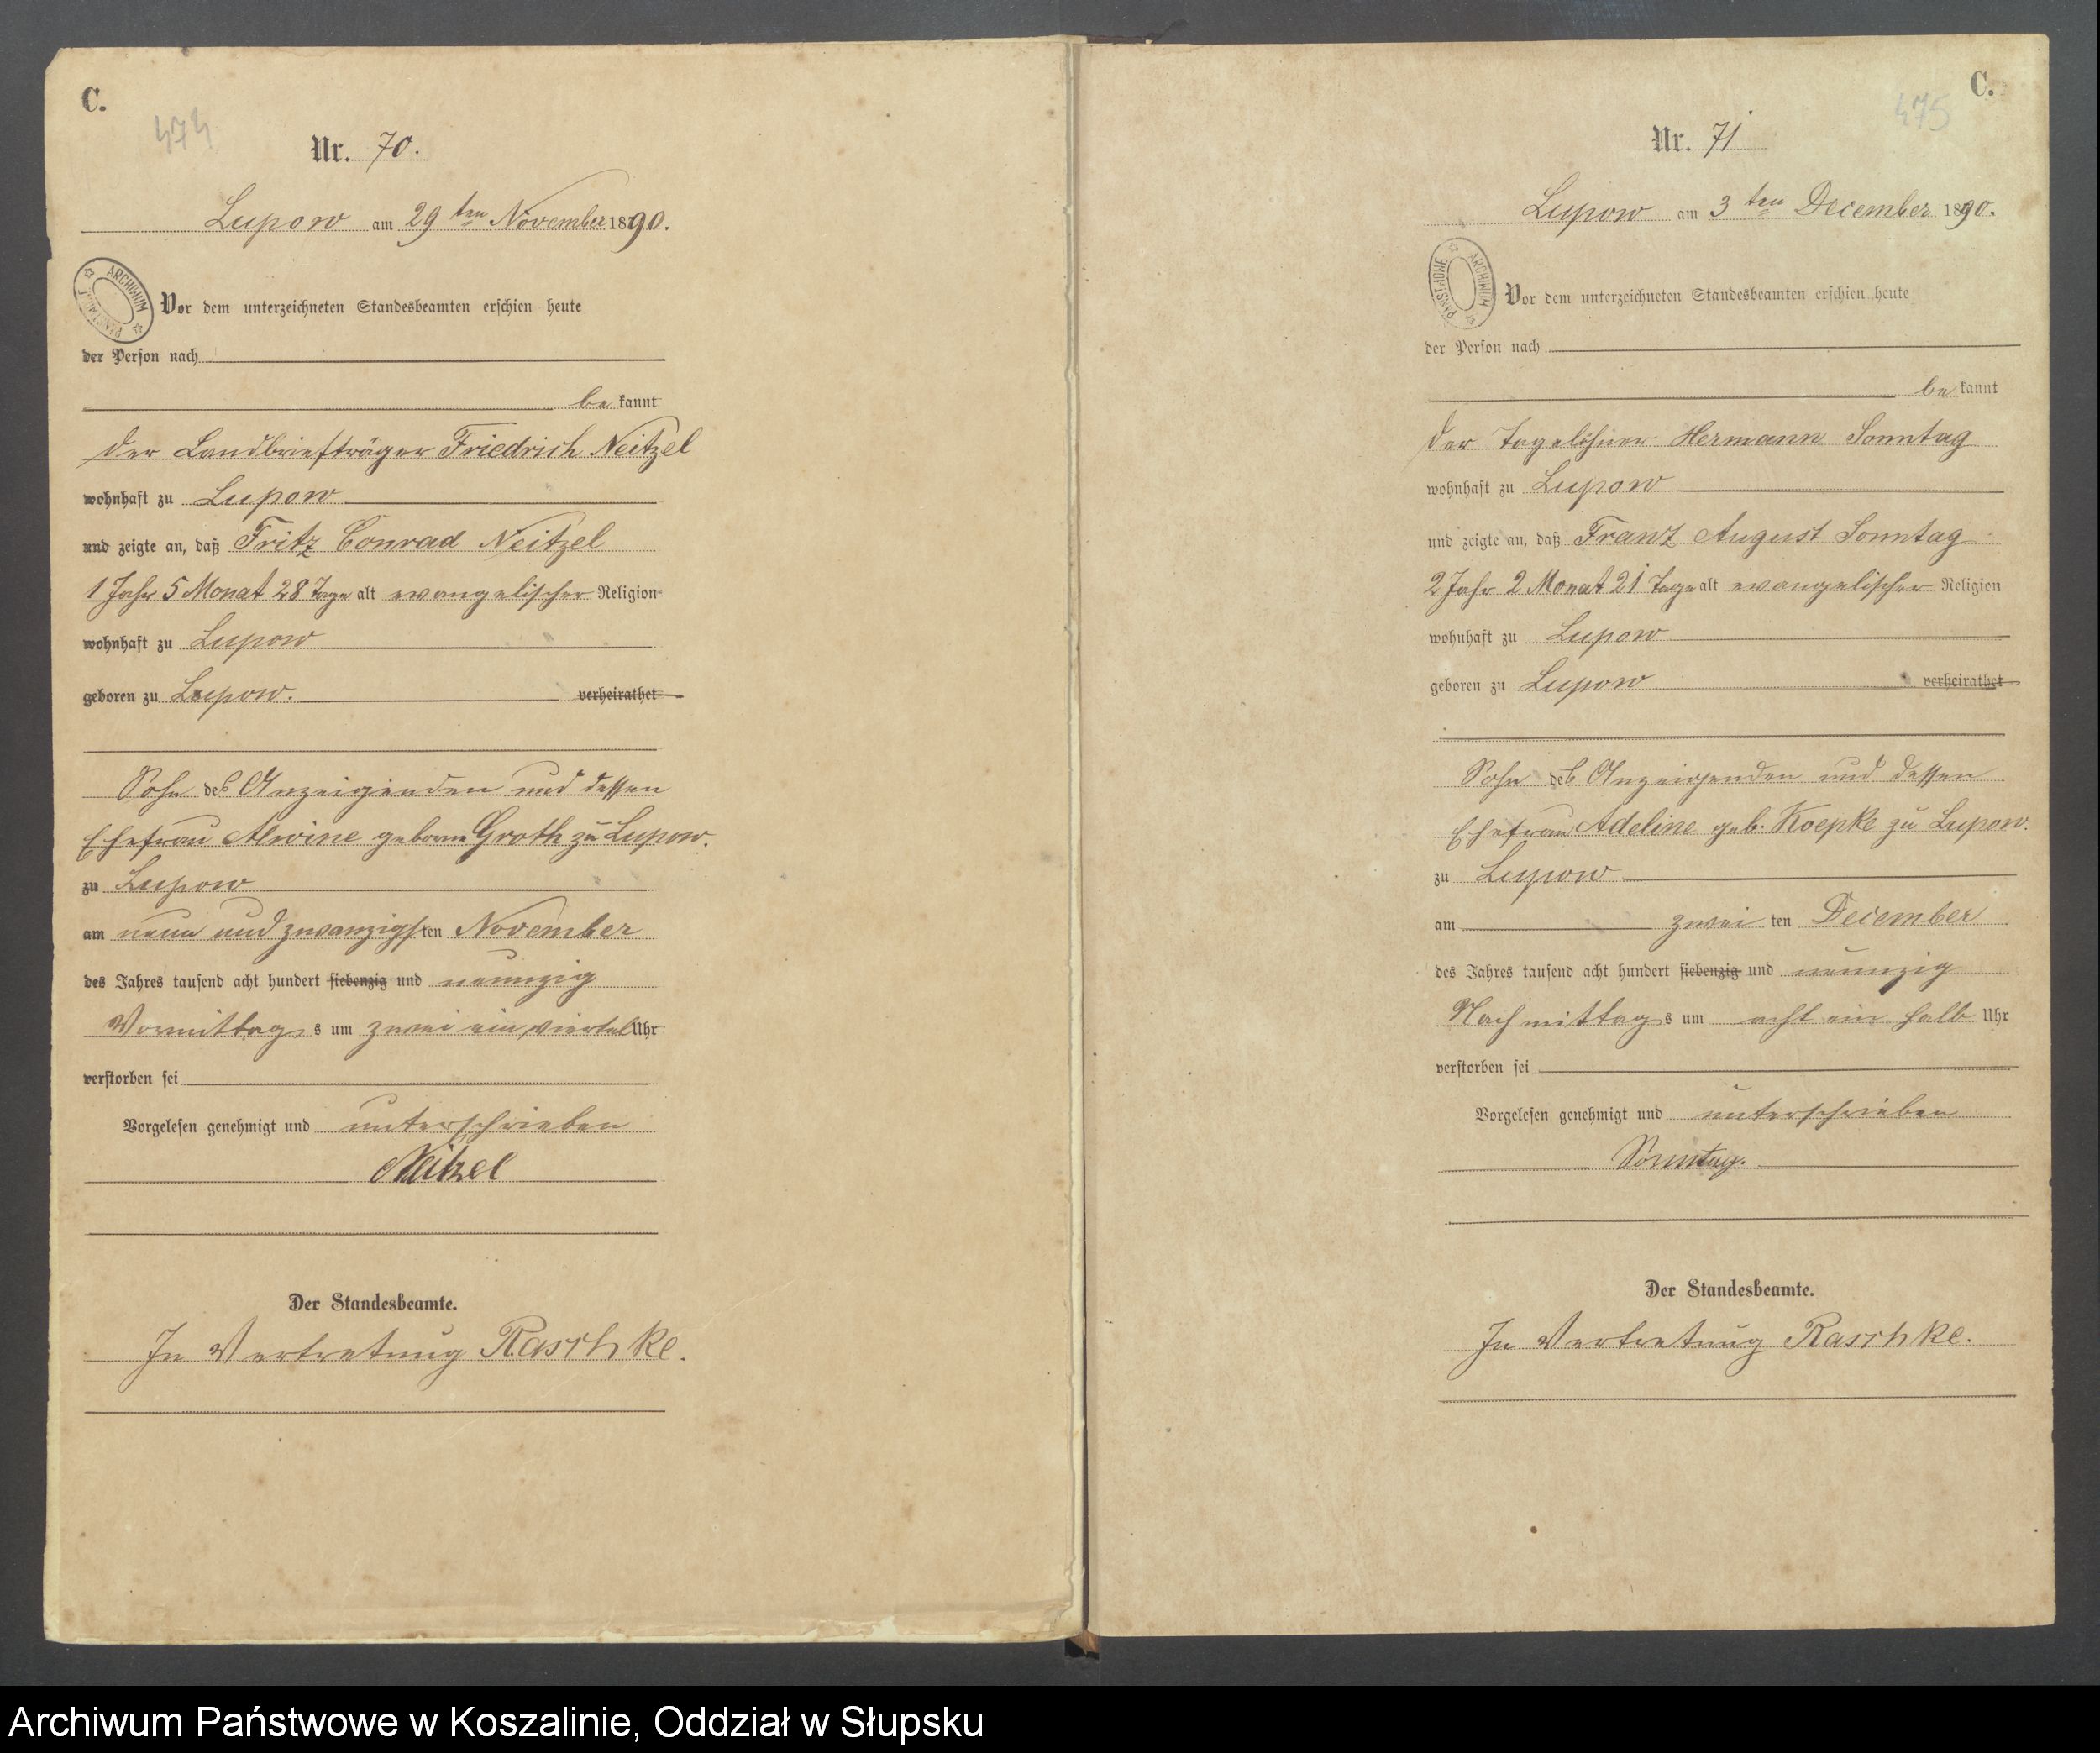 C.
474
Nr. 70.
Lupow am 29 ten November 1890.
ARCHIWUM PAŃSTWOWE
Vor dem unterzeichneten Standesbeamten erschien heute
der Person nach
be kannt
der Landbriefträger Friedrich Neitzel
wohnhaft zu Lupow
und zeigte an, daß Fritz Conrad Neitzel
1 Jahr 5 Monat 28 Tage alt evangelischer Religion
wohnhaft zu Lupow
geboren zu Lupow. verheirathet
Sohn des Anzeigenden und dessen
Ehefrau Alwine geborne Groth zu Lupow.
zu Lupow
am neun und zwanzigsten November
des Jahres tausend acht hundert siebenzig und neunzig
Vormittags um zwei ein viertel Uhr
verstorben sei
Vorgelesen genehmigt und unterschrieben
Neitzel
Der Standesbeamte.
In Vertretung Raschke.
C.
475
Nr. 71
Lupow am 3 ten December 1890.
ARCHIWUM PAŃSTWOWE
Vor dem unterzeichneten Standesbeamten erschien heute
der Person nach
be kannt
der Tagelöhner Hermann Sonntag
wohnhaft zu Lupow
und zeigte an, daß Franz August Sonntag
2 Jahr 2 Monat 21 Tage alt evangelischer Religion
wohnhaft zu Lupow
geboren zu Lupow verheirathet
Sohn des Anzeigenden und dessen
Ehefrau Adeline geb. Koepke zu Lupow.
zu Lupow
am zwei ten December
des Jahres tausend acht hundert siebenzig und neunzig
Nachmittags um acht ein halb Uhr
verstorben sei
Vorgelesen genehmigt und unterschrieben
Sonntag.
Der Standesbeamte.
In Vertretung Raschke.
Archiwum Państwowe w Koszalinie, Oddział w Słupsku